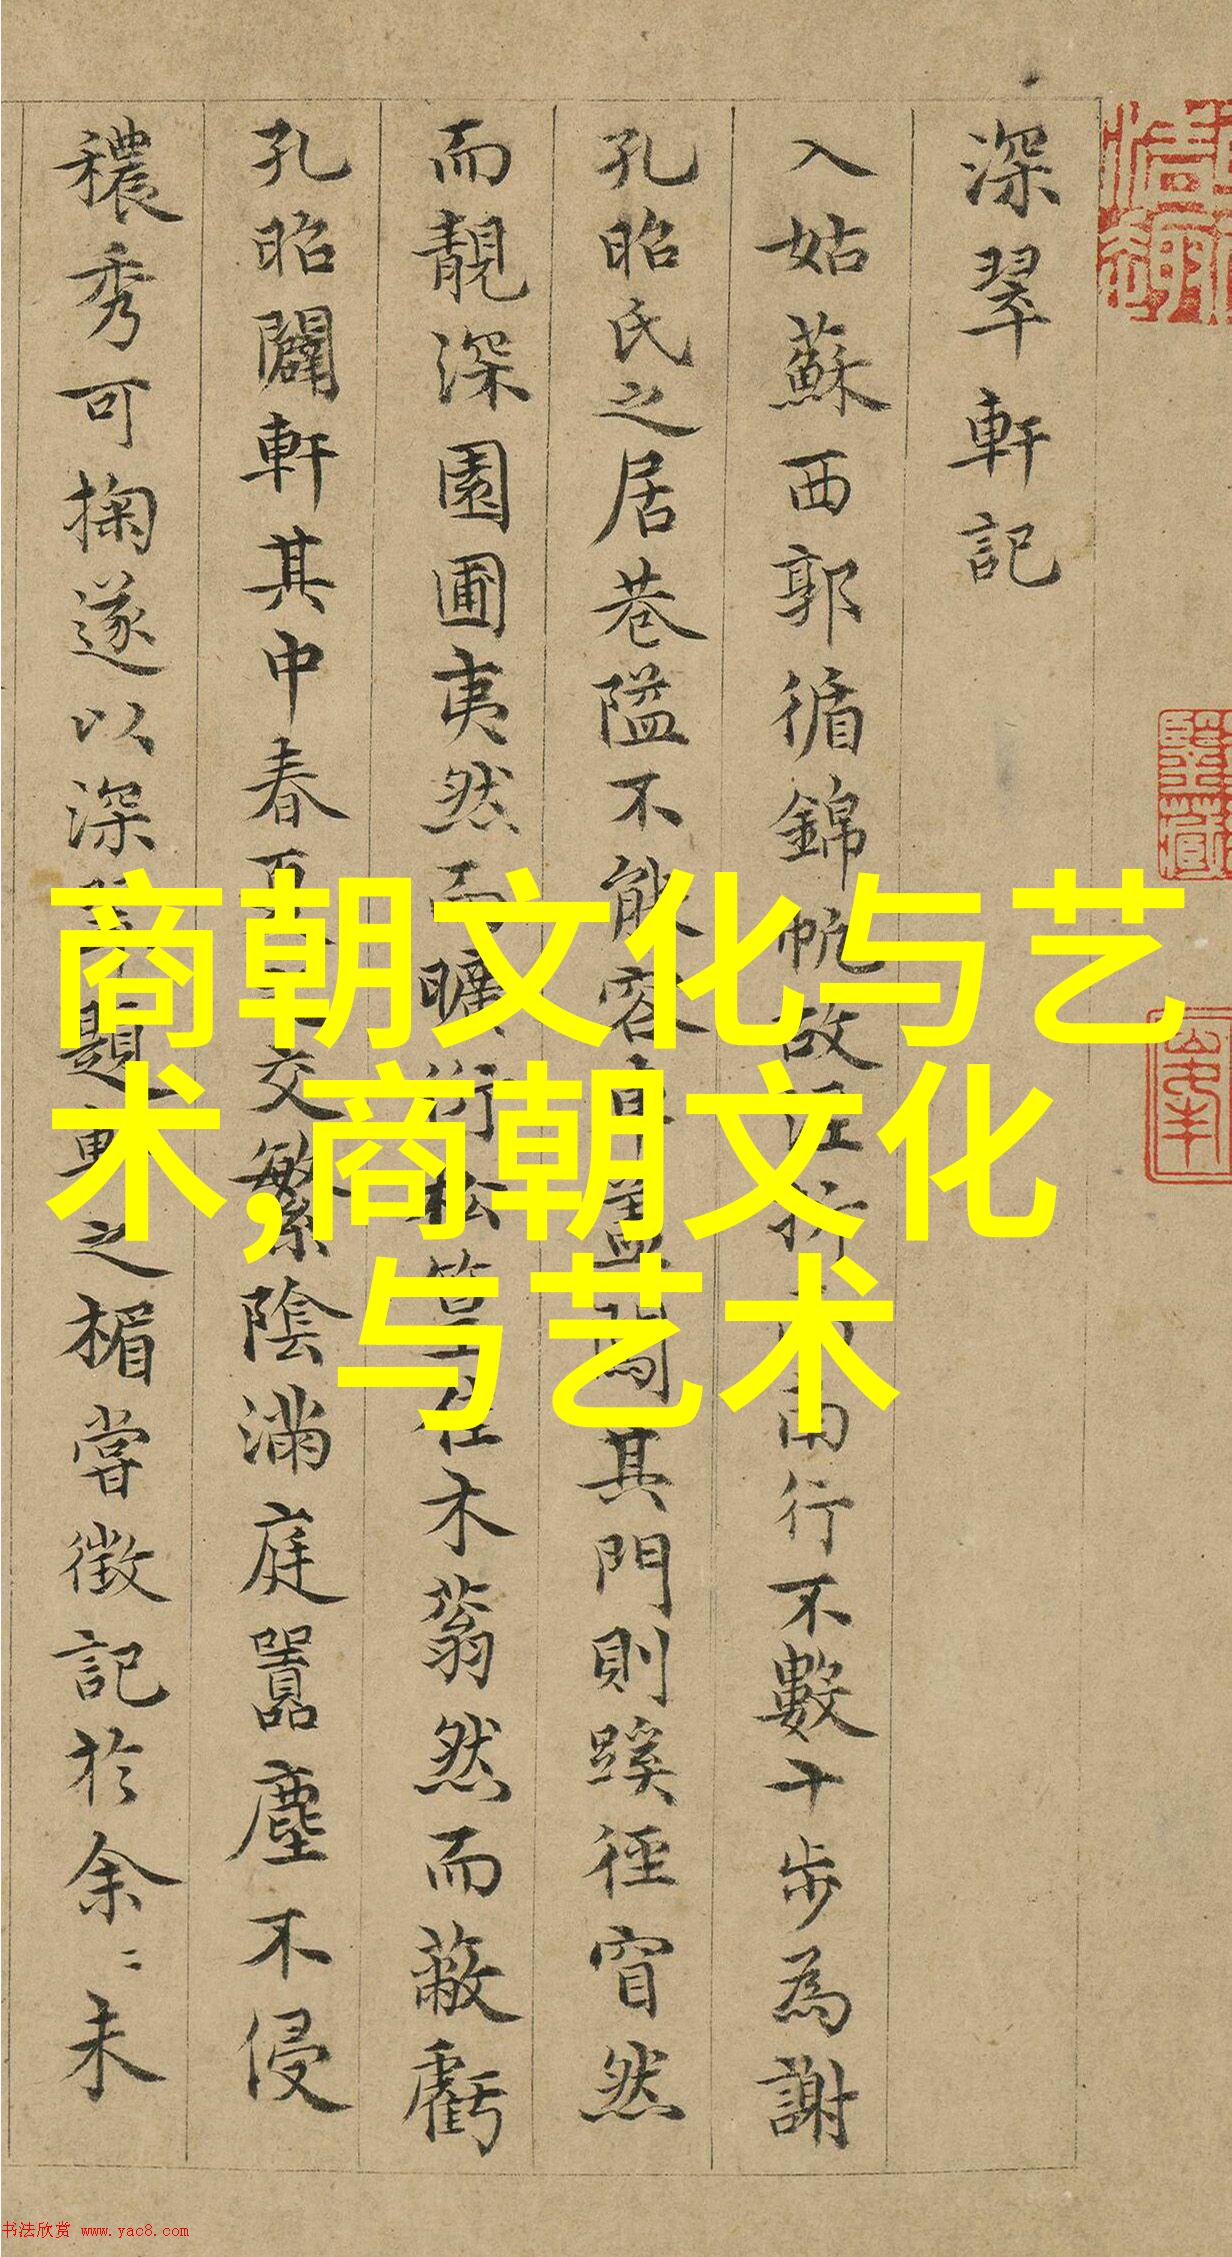 深翠軒記
入姑蘇西郭循錦帆故涇折而南行不數十步為謝
孔昭氏之居巷隘不能容車蓋闖其門則蹊徑窅然
而靚深園圃夷然而曠衍松篁佳木蓊然而蔽虧
孔昭闢軒其中春夏之交繁陰滿庭囂塵不侵
穠秀可掬遂以深翠題軒之楣嘗徵記於余〻未
商朝文化与艺
术,商朝文化
与艺术
书法欣赏 www.yac8.com